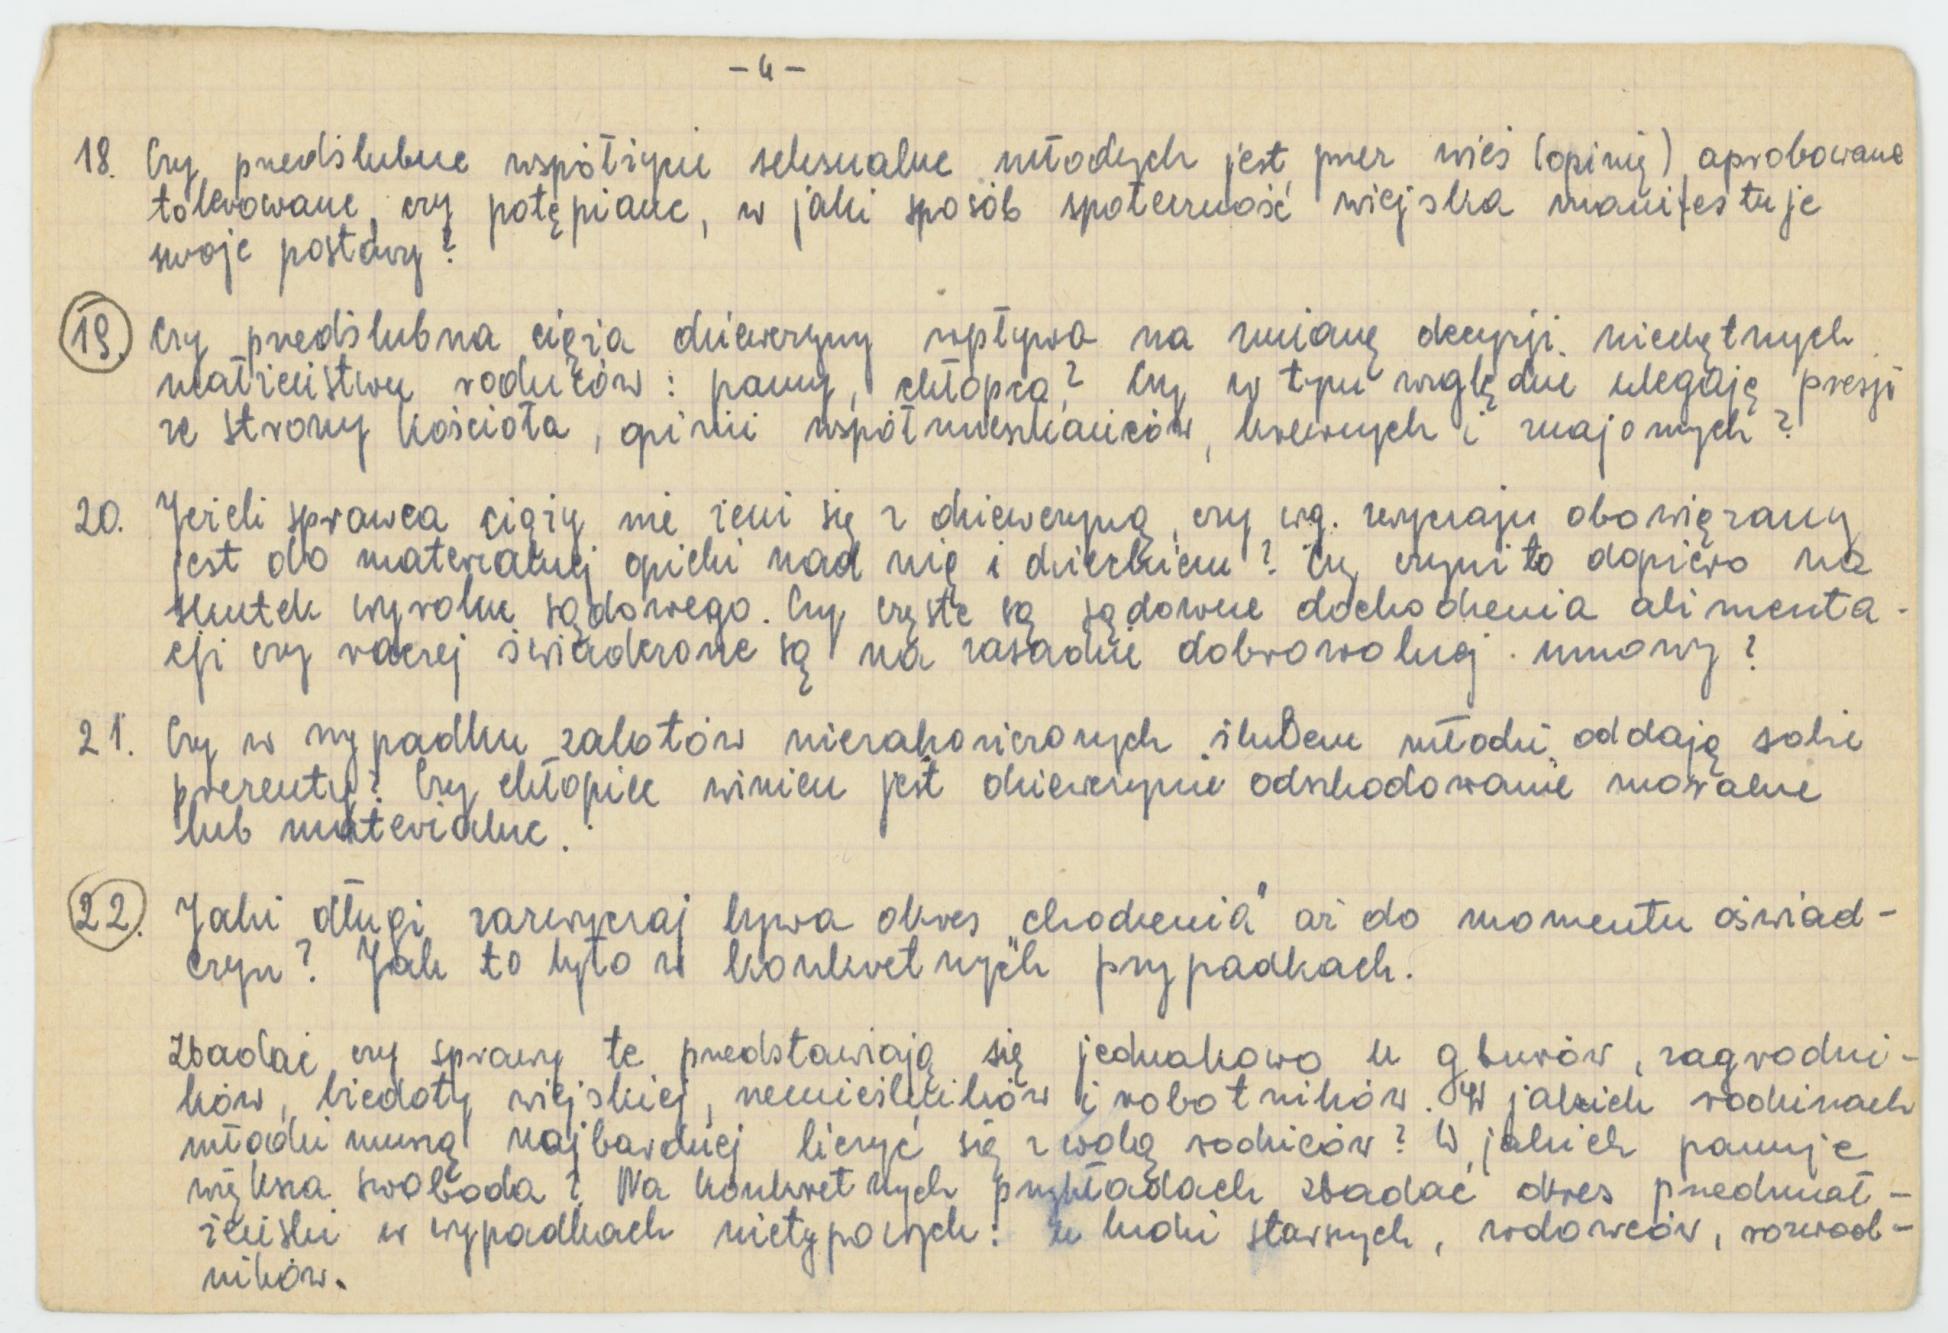 - 4 -
18. Czy przedślubne współżycie seksualne młodych jest przez wieś (opinię) aprobowane
tolerowane, czy potępiane, w jaki sposób społeczność wiejska manifestuje
swoje postawy?
19. Czy przedślubna ciąża dziewczyny wpływa na zmianę decyzji niechętnych
małżeństwu rodziców: panny, chłopca? Czy w tym względzie ulegają presji
ze strony kościoła, opinii współmieszkańców, krewnych i znajomych?
20. Jeżeli sprawca ciąży nie żeni się z dziewczyną, czy wg. zwyczaju obowiązany
jest do materialnej opieki nad nią i dzieckiem? Czy czyni to dopiero na
skutek wyroku sądowego. Czy częste są sądowne dochodzenia alimenta-
cji czy raczej świadczone są na zasadzie dobrowolnej umowy?
21. Czy w wypadku zalotów niezakończonych ślubem młodzi oddają sobie
prezenty? Czy chłopiec winien jest dziewczynie odszkodowanie moralne
lub materialne.
22. Jaki długi zazwyczaj bywa okres „chodzenia" aż do momentu oświad-
czyn? Jak to było w konkretnych przypadkach.
Zbadać czy sprawy te przedstawiają się jednakowo u gburów, zagrodni-
ków, biedoty wiejskiej, rzemieślników i robotników. W jakich rodzinach
młodzi muszą najbardziej liczyć się z wolą rodziców? W jakich panuje
większa swoboda? Na konkretnych przykładach zbadać okres przedmał-
żeński w wypadkach nietypowych: u ludzi starszych, wdowców, rozwod-
ników.